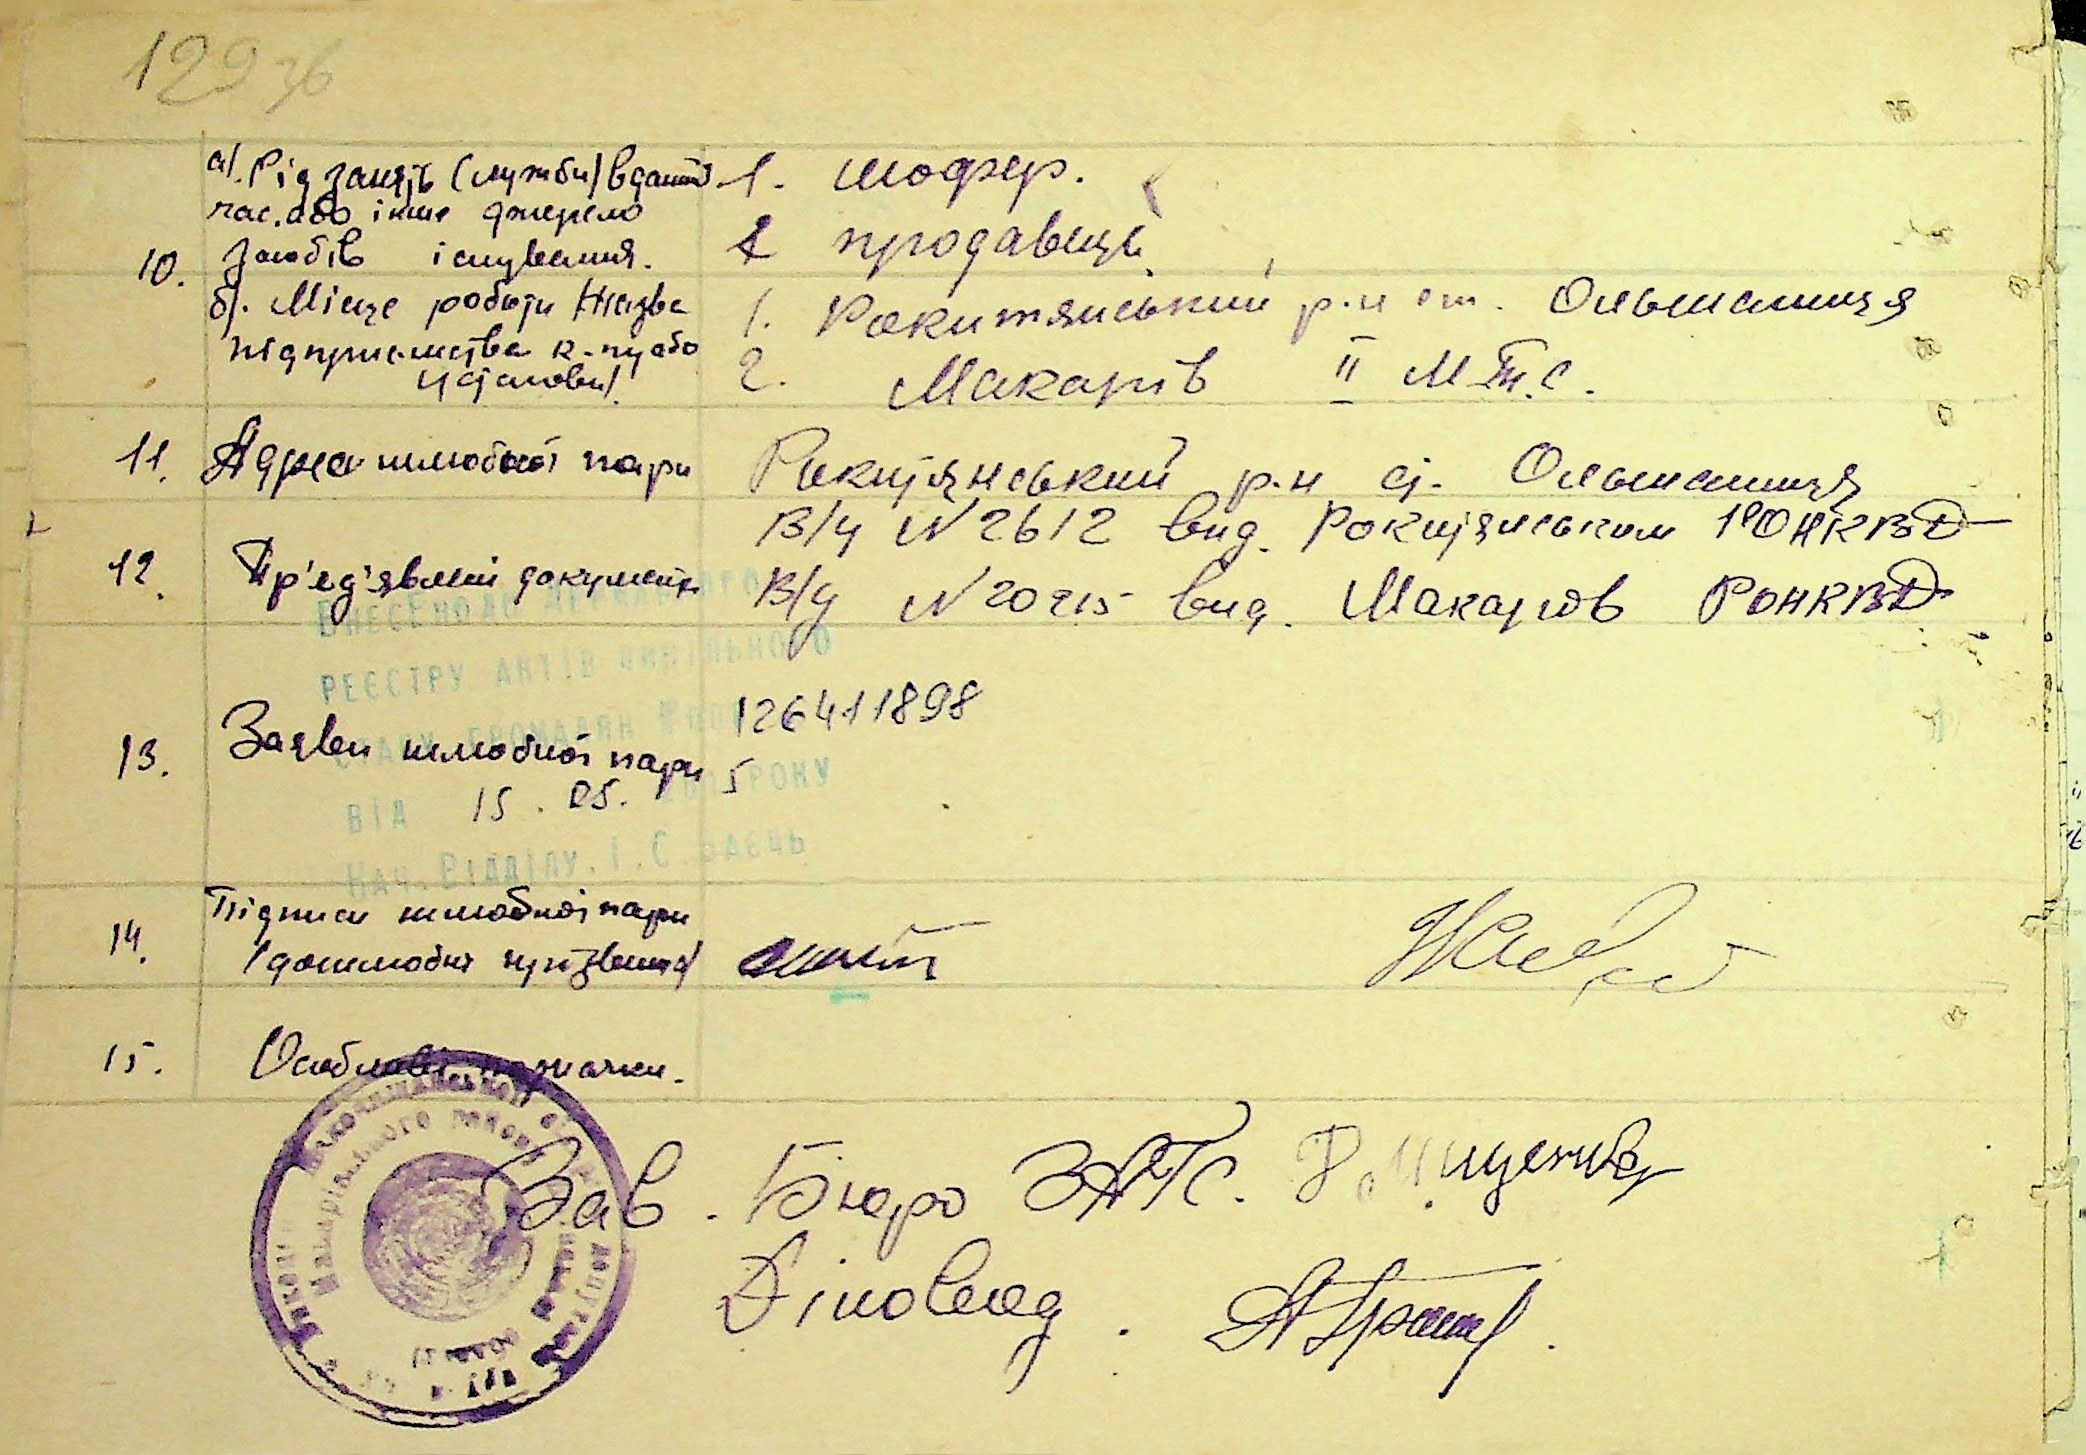 129 зв
а). Рід занять (служби) в даний
час. або інше джерело
10. засобів існування.
1. шофер.
2 продавець
б). Місце роботи (Назва
підприємства к-пу або
установи).
1. Рокитянський р-н ст. Ольшаниця
2. Макарів II М.Т.С.
11. Адреса шлюбної пари
Рокитянський р-н ст. Ольшаниця
12. Пр'ед'явлені документи
В/ч N 2612 вид. Рокитянським РОНКВД
В/д N 20215 вид. Макаров РОНКВД
Внесено до Державного
реєстру актів цивільного
стану громадян
від 15.05. року
Нач. Відділу. І. С.
13. Заяви шлюбної пари
126411898
5
14. Підписи шлюбної пари
(дошлюбні прізвища)
15. Особливі позначки.
Макарівського району
Зав. Бюро ЗАГС.
Діловод.